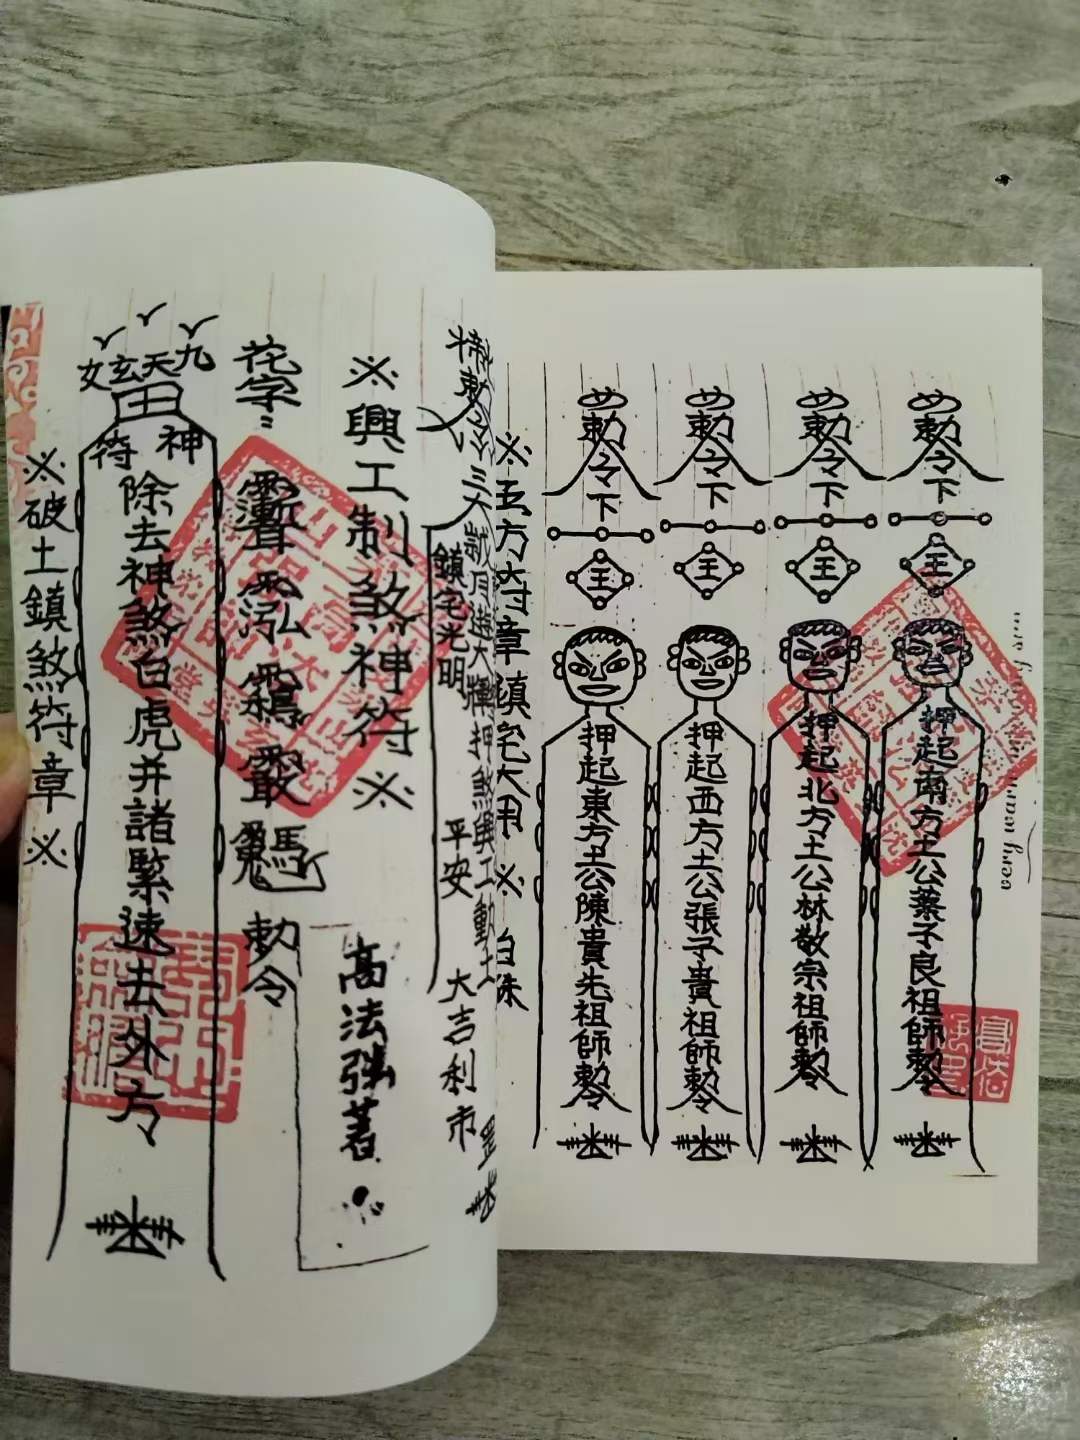 敕令下
王
押起南方土公蔡子良祖師敕令
敕令下
王
押起北方土公林敬宗祖師敕令
敕令下
王
押起西方土公張子貴祖師敕令
敕令下
王
押起東方土公陳貴先祖師敕令
※五方符章鎮宅大用※
鎮宅光明
平安
大吉利市
※興工制煞神符※
高法強著
花字:
敕令
九天玄女
神符
除去神煞白虎并諸緊速去外方
※破土鎮煞符章※